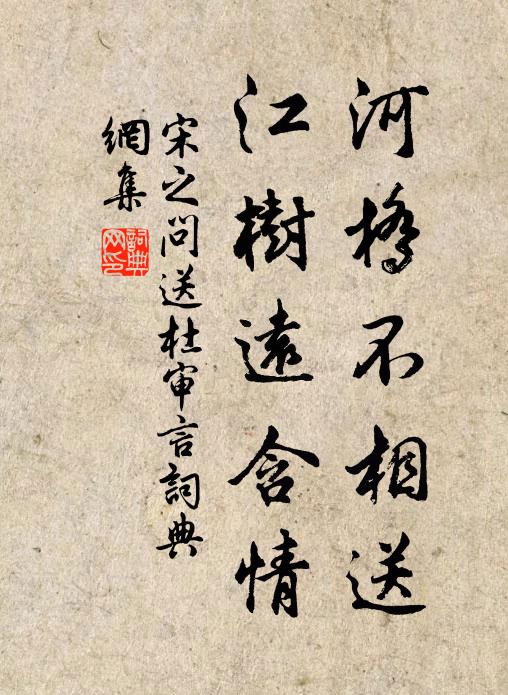 河橋不相送
江樹遠含情
宋之问送杜审言詞典
網集
詞典
网印